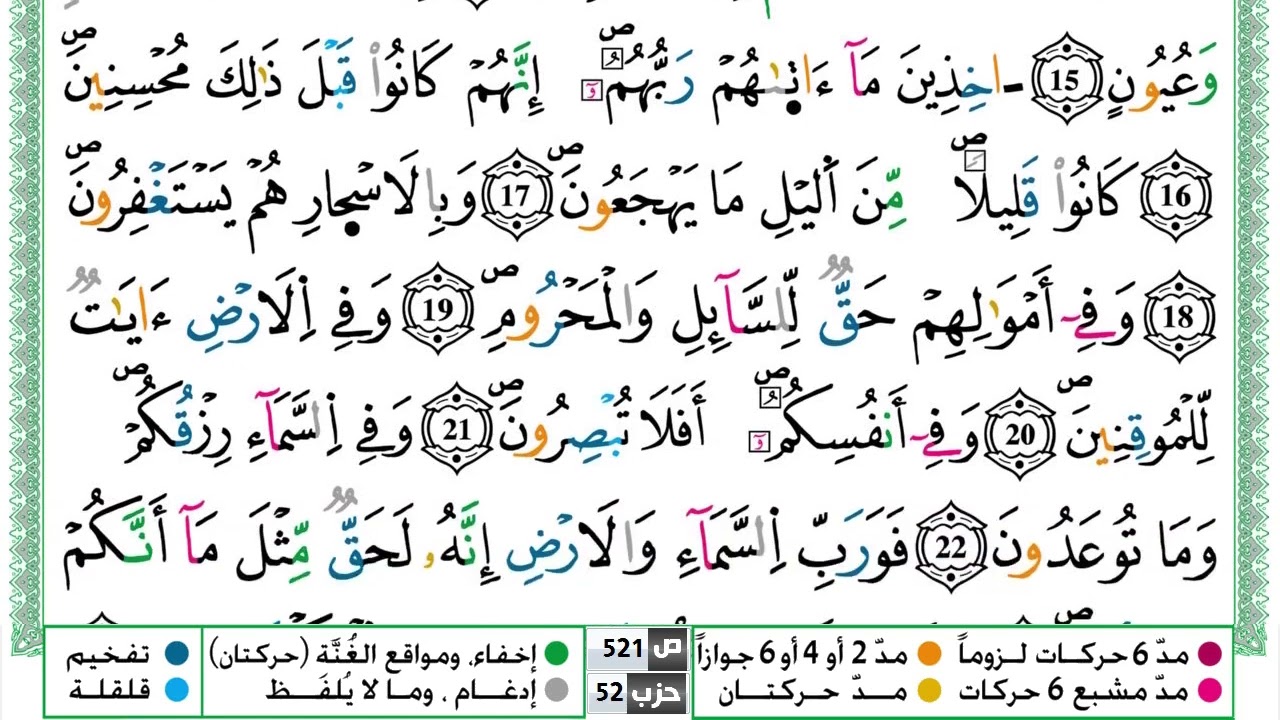 وَعُيُونٍ 15 ـاخِذِينَ مَآ ءَاتٜىٰهُمْ رَبُّهُمُۥٓ إِنَّهُمْ كَانُوا۟ قَبْلَ ذَٰلِكَ مُحْسِنِينَ ص
16 كَانُوا۟ قَلِيلًا مِّنَ اَ۬ليْلِ مَا يَهْجَعُونَ ص 17 وَبِالَاسْحٜارِ هُمْ يَسْتَغْفِرُونَ ص
18 وَفِےٓ أَمْوَٰلِهِمْ حَقٌّ لِّلسَّآئِلِ وَالْمَحْرُومِ ص 19 وَفِي اِ۬لَارْضِ ءَايَٰتٌ
لِّلْمُوقِنِينَ ص 20 وَفِےٓ أَنفُسِكُمُۥٓ أَفَلَا تُبْصِرُونَ ص 21 وَفِي اِ۬لسَّمَآءِ رِزْقُكُمْ ص
وَمَا تُوعَدُونَ 22 فَوَرَبِّ اِ۬لسَّمَآءِ وَالَارْضِ إِنَّهُۥ لَحَقٌّ مِّثْلَ مَآ أَنَّكُمْ
مدّ 6 حركات لـزوماً مدّ 2 أو 4 أو 6 جوازاً ص 521 إخفاء، ومواقع الغُنَّة (حركتان) تفخيم
مدّ مشبع 6 حركات مـدّ حركتـان حزب 52 إدغـام ، ومـا لا يُلفَـظ قلقلة